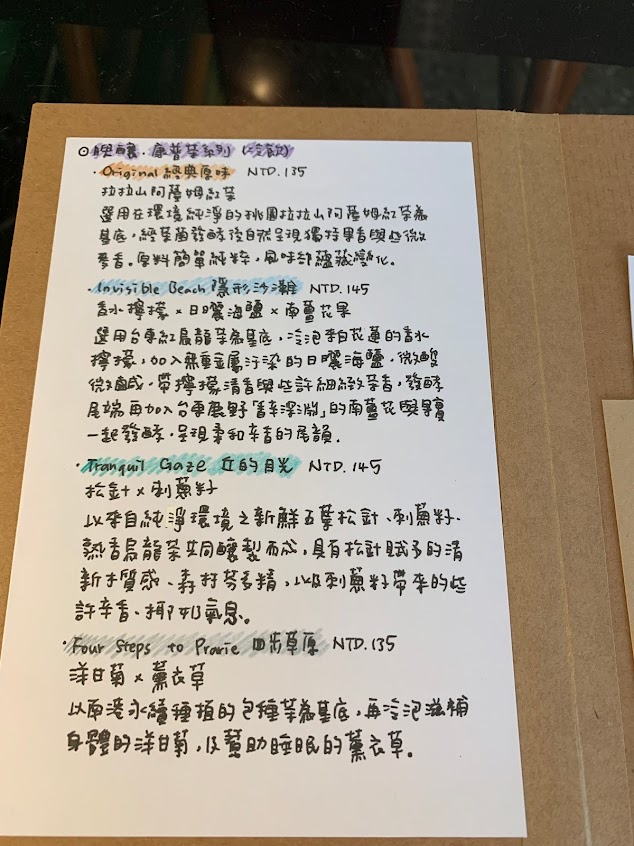 ⊙與釀・康普茶系列 (冷飲)
・Original 經典原味 NTD.135
拉拉山阿薩姆紅茶
選用在環境純淨的桃園拉拉山阿薩姆紅茶為
基底,經菜菌發酵後自然呈現獨特果香與些微
麥香。原料簡單純粹,風味卻蘊藏變化。
・Invisible Beach 隱形沙灘 NTD.145
香水檸檬 × 日曬海鹽 × 南薑花果
選用台東紅烏龍茶為基底,冷泡來自花蓮的香水
檸檬,加入無重金屬汙染的日曬海鹽。微酸
微鹹,帶檸檬清香與些許細緻茶香,發酵
尾端再加入台東鹿野「
」的南薑花與果實
一起發酵,呈現柔和辛香的尾韻.
・Tranquil Gaze 丘的目光 NTD.145
松針 × 刺蔥籽
以來自純淨環境之新鮮五葉松針、刺蔥籽、
熟香烏龍茶共同釀製而成,具有松針賦予的清
新木質感、森林芬多精,以及刺蔥籽帶來的些
許辛香、椰奶氣息。
・Four Steps to Prarie 四步草原 NTD.135
洋甘菊 × 薰衣草
以永續種植的包種茶為基底,再冷泡滋補
身體的洋甘菊,及幫助睡眠的薰衣草.